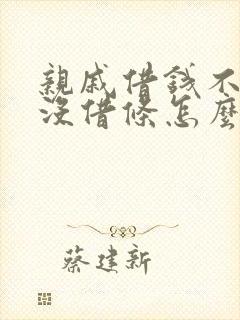 親戚借錢不
沒借條怎麼
蔡建新